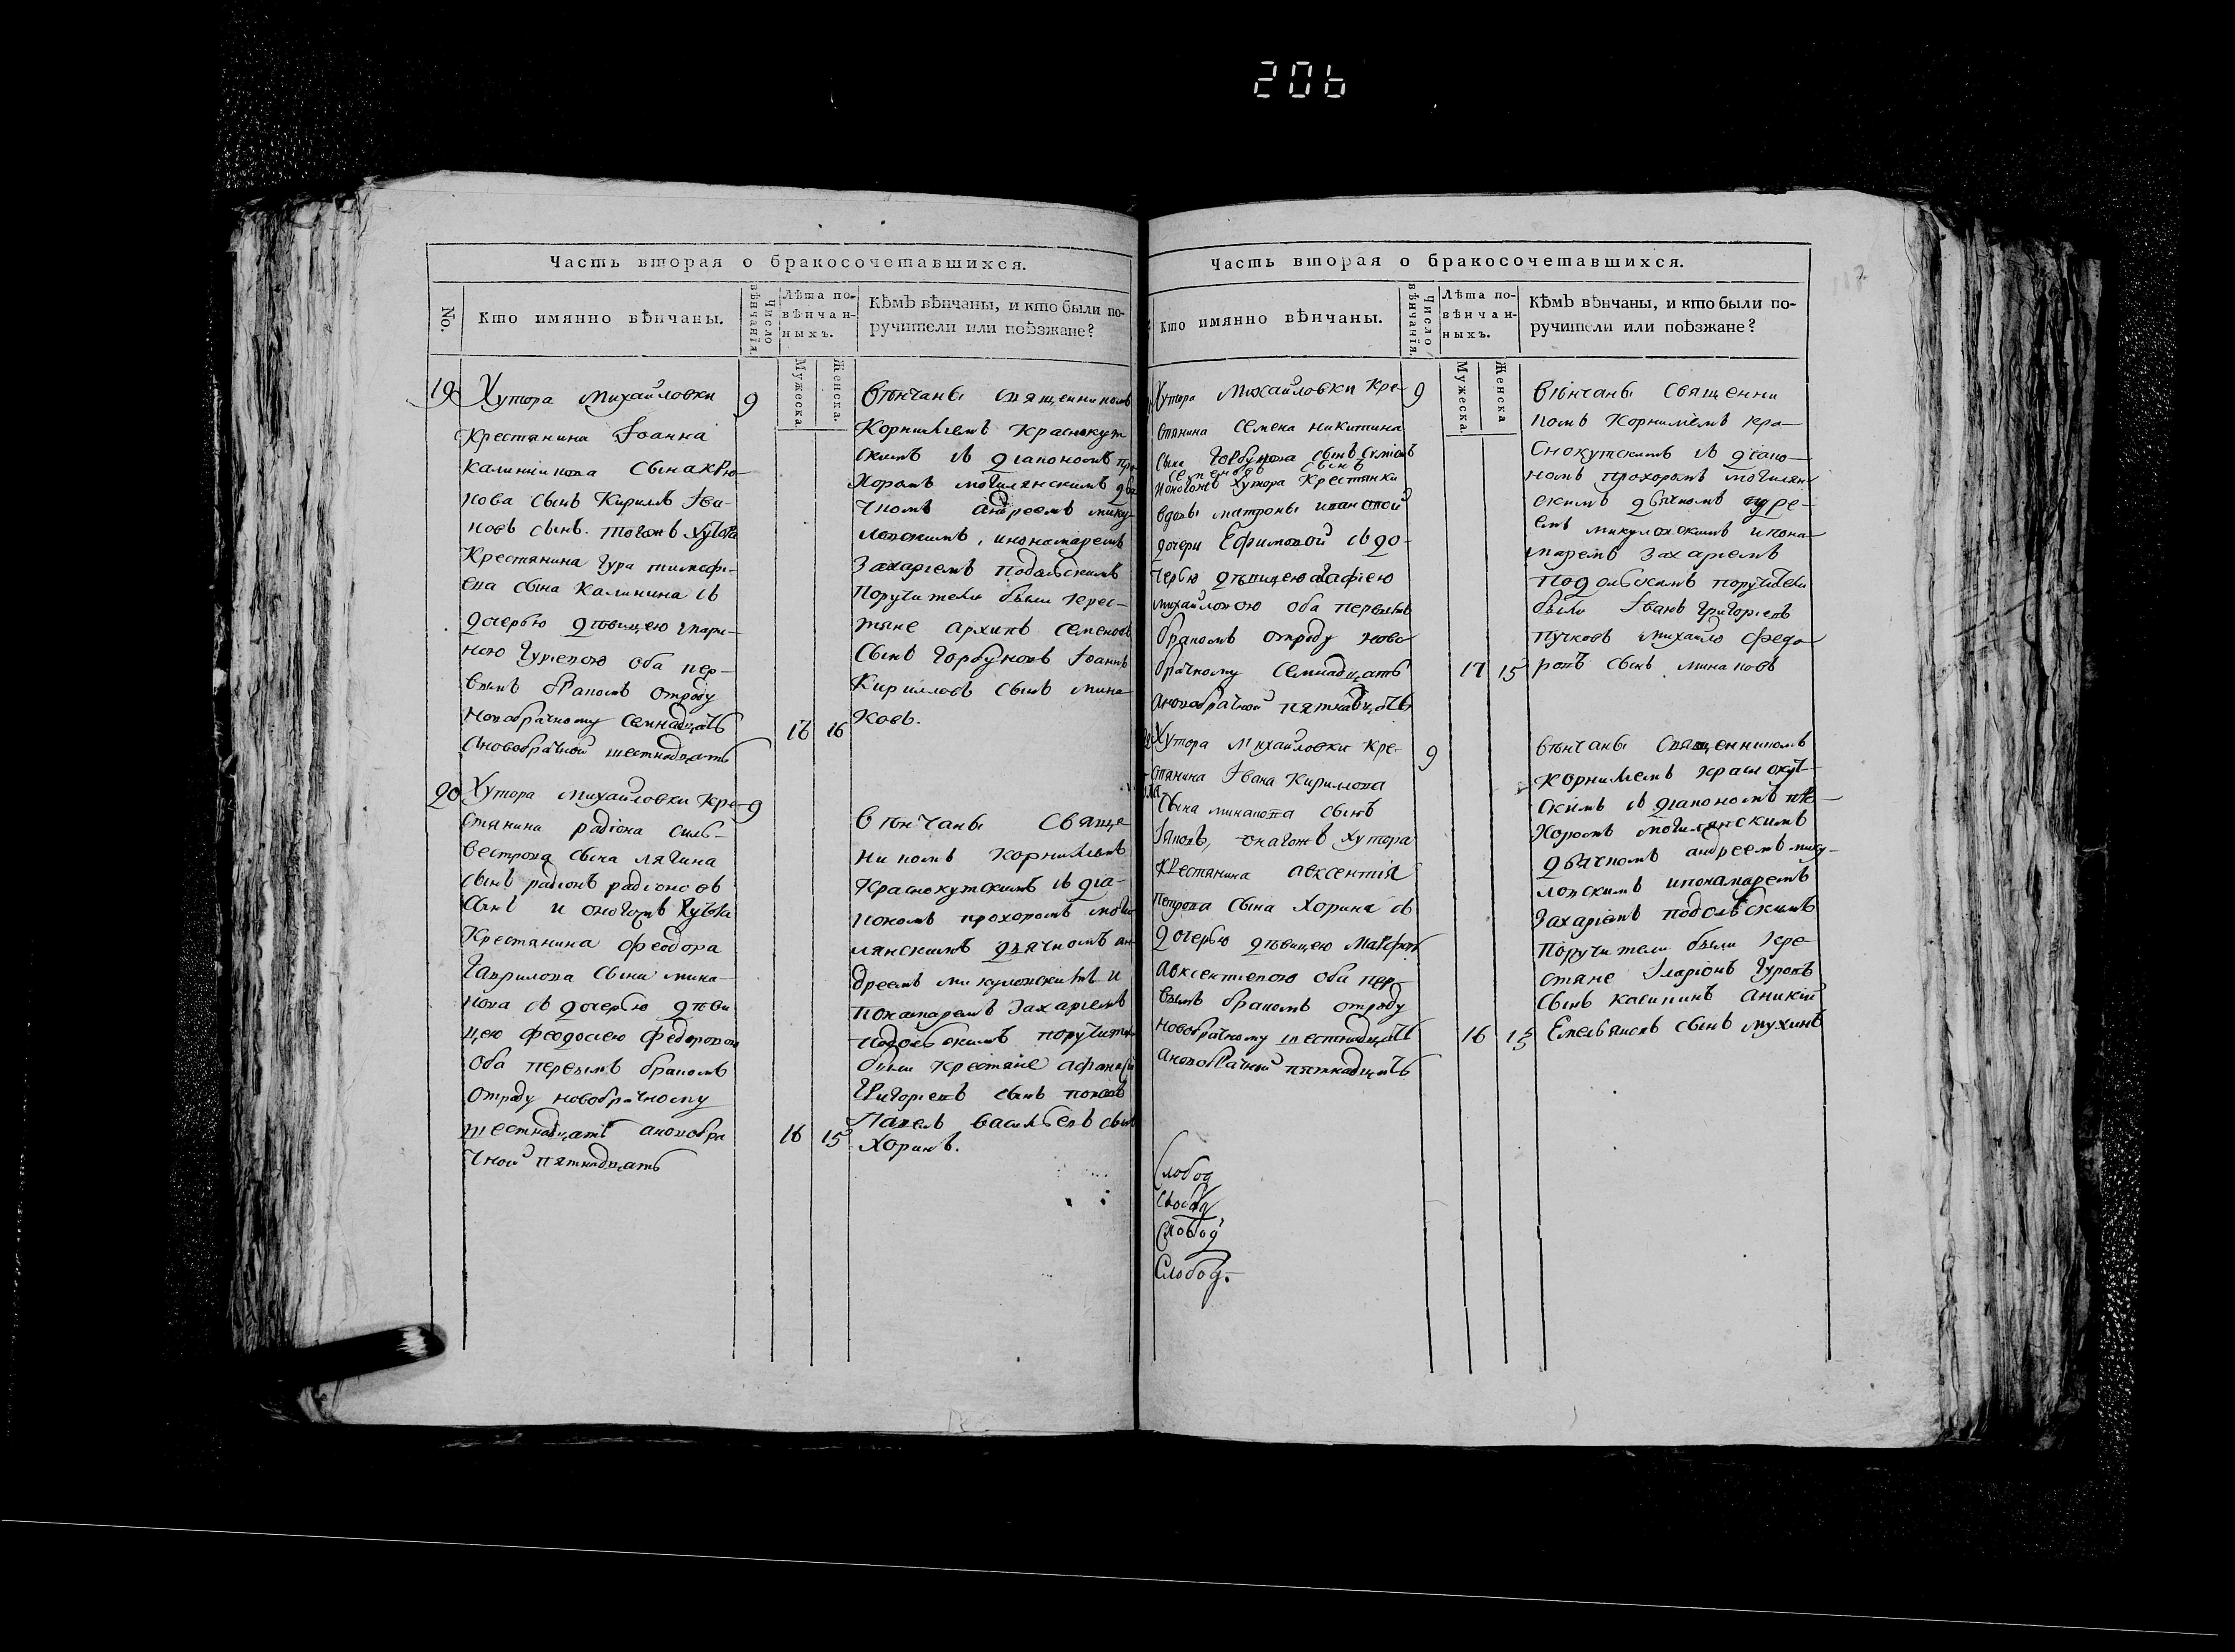 206
Часть вторая о бракосочетавшихся.
No.
Кто имянно вѣнчаны.
Число вѣнчанія.
Лѣта по-
вѣнчан-
ныхъ.
Мужеска.
Женска.
Кѣмъ вѣнчаны, и кто были по-
ручители или поѣзжане?
19
Хутора Михайловки
9
крестянина Іоанна
сына
нова сынъ Кирилъ Іва-
новъ сынъ. тогожъ хутора
Крестянина Гура тимофе-
ева сына Калинина съ
дочерью дѣвицею мари-
ною Гуревою оба пер-
вымъ бракомъ отроду
новобрачному семнадцать
а новобрачной шестнадцать
16
вѣнчаны священникомъ
Корниліемъ краснокут
скимъ съ діакономъ про-
хоромъ могилянскимъ дья
чкомъ андреемъ мику-
ловскимъ, ипономаремъ
Захаріемъ подольскимъ
Поручители были крес-
тяне архипъ семеновъ
сынъ Горбуновъ Іоаннъ
Кириловъ сынъ мина-
ковъ.
20
Хутора михайловки кре-
9
стянина радіона силь-
вестрова сына лягина
сынъ радіонъ радіоновъ
сынъ и оногожъ хутора
Крестянина феодора
Гаврилова сына мина-
кова съ дочерью дѣви
цею феодосиею федоровою
оба первымъ бракомъ
отроду новобрачному
шестнадцать а новобра
чной пятнадцать
16
15
вѣнчаны свяще
нникомъ корниліемъ
Краснокутскимъ съ діа-
кономъ прохоромъ моги
лянскимъ дьячкомъ ан-
дреемъ микуловскимъ и
пономаремъ Захаріемъ
подольскимъ поручители
были крестяне афанасій
Григоріевъ сынъ поповъ
Павелъ васильевъ сынъ
Хоринъ.
Часть вторая о бракосочетавшихся.
Кто имянно вѣнчаны.
Число вѣнчанія.
Лѣта по-
вѣнчан-
ныхъ.
Мужеска.
Женска
Кѣмъ вѣнчаны, и кто были по-
ручители или поѣзжане?
Хутора Михайловки кре-
9
стянина семена никитина
сына Горбунова сынъ симіонъ
семеновъ сынъ
хутора крестянки
вдовы матроны
дочери Ефимовой съ до-
черью дѣвицею агафіею
михайловою оба первымъ
бракомъ отроду ново
брачному семнадцать
а новобрачной пятнадцать
17
15
вѣнчаны священни
комъ корниліемъ кра-
снокутскимъ съ діако-
номъ прохоромъ могилян
скимъ дьячкомъ андре-
емъ микуловскимъ ипоно-
маремъ захаріемъ
подольскимъ поручители
были Іванъ Григоріевъ
пучковъ михайло федо-
ровъ сынъ минаковъ
Хутора михайловки кре-
9
стянина Ивана Кирилова
сына минакова сынъ
Іяковъ, онагожъ хутора
Крестянина авксентія
петрова сына Хорина съ
дочерью дѣвицею Марфою
авксентіевою оба пер-
вымъ бракомъ отроду
новобрачному шестнадцать
а новобрачной пятнадцать
16
15
вѣнчаны священникомъ
корниліемъ краснокут-
скимъ съ діакономъ про-
хоромъ могилянскимъ
дьячкомъ андреемъ мику-
ловскимъ ипонамаремъ
Захаріемъ подольскимъ
Поручители были кре-
стяне Иларіонъ Гуровъ
сынъ калининъ аникій
Емельяновъ сынъ мухинъ
Слобод
Слобод
Слобод
Слобод.